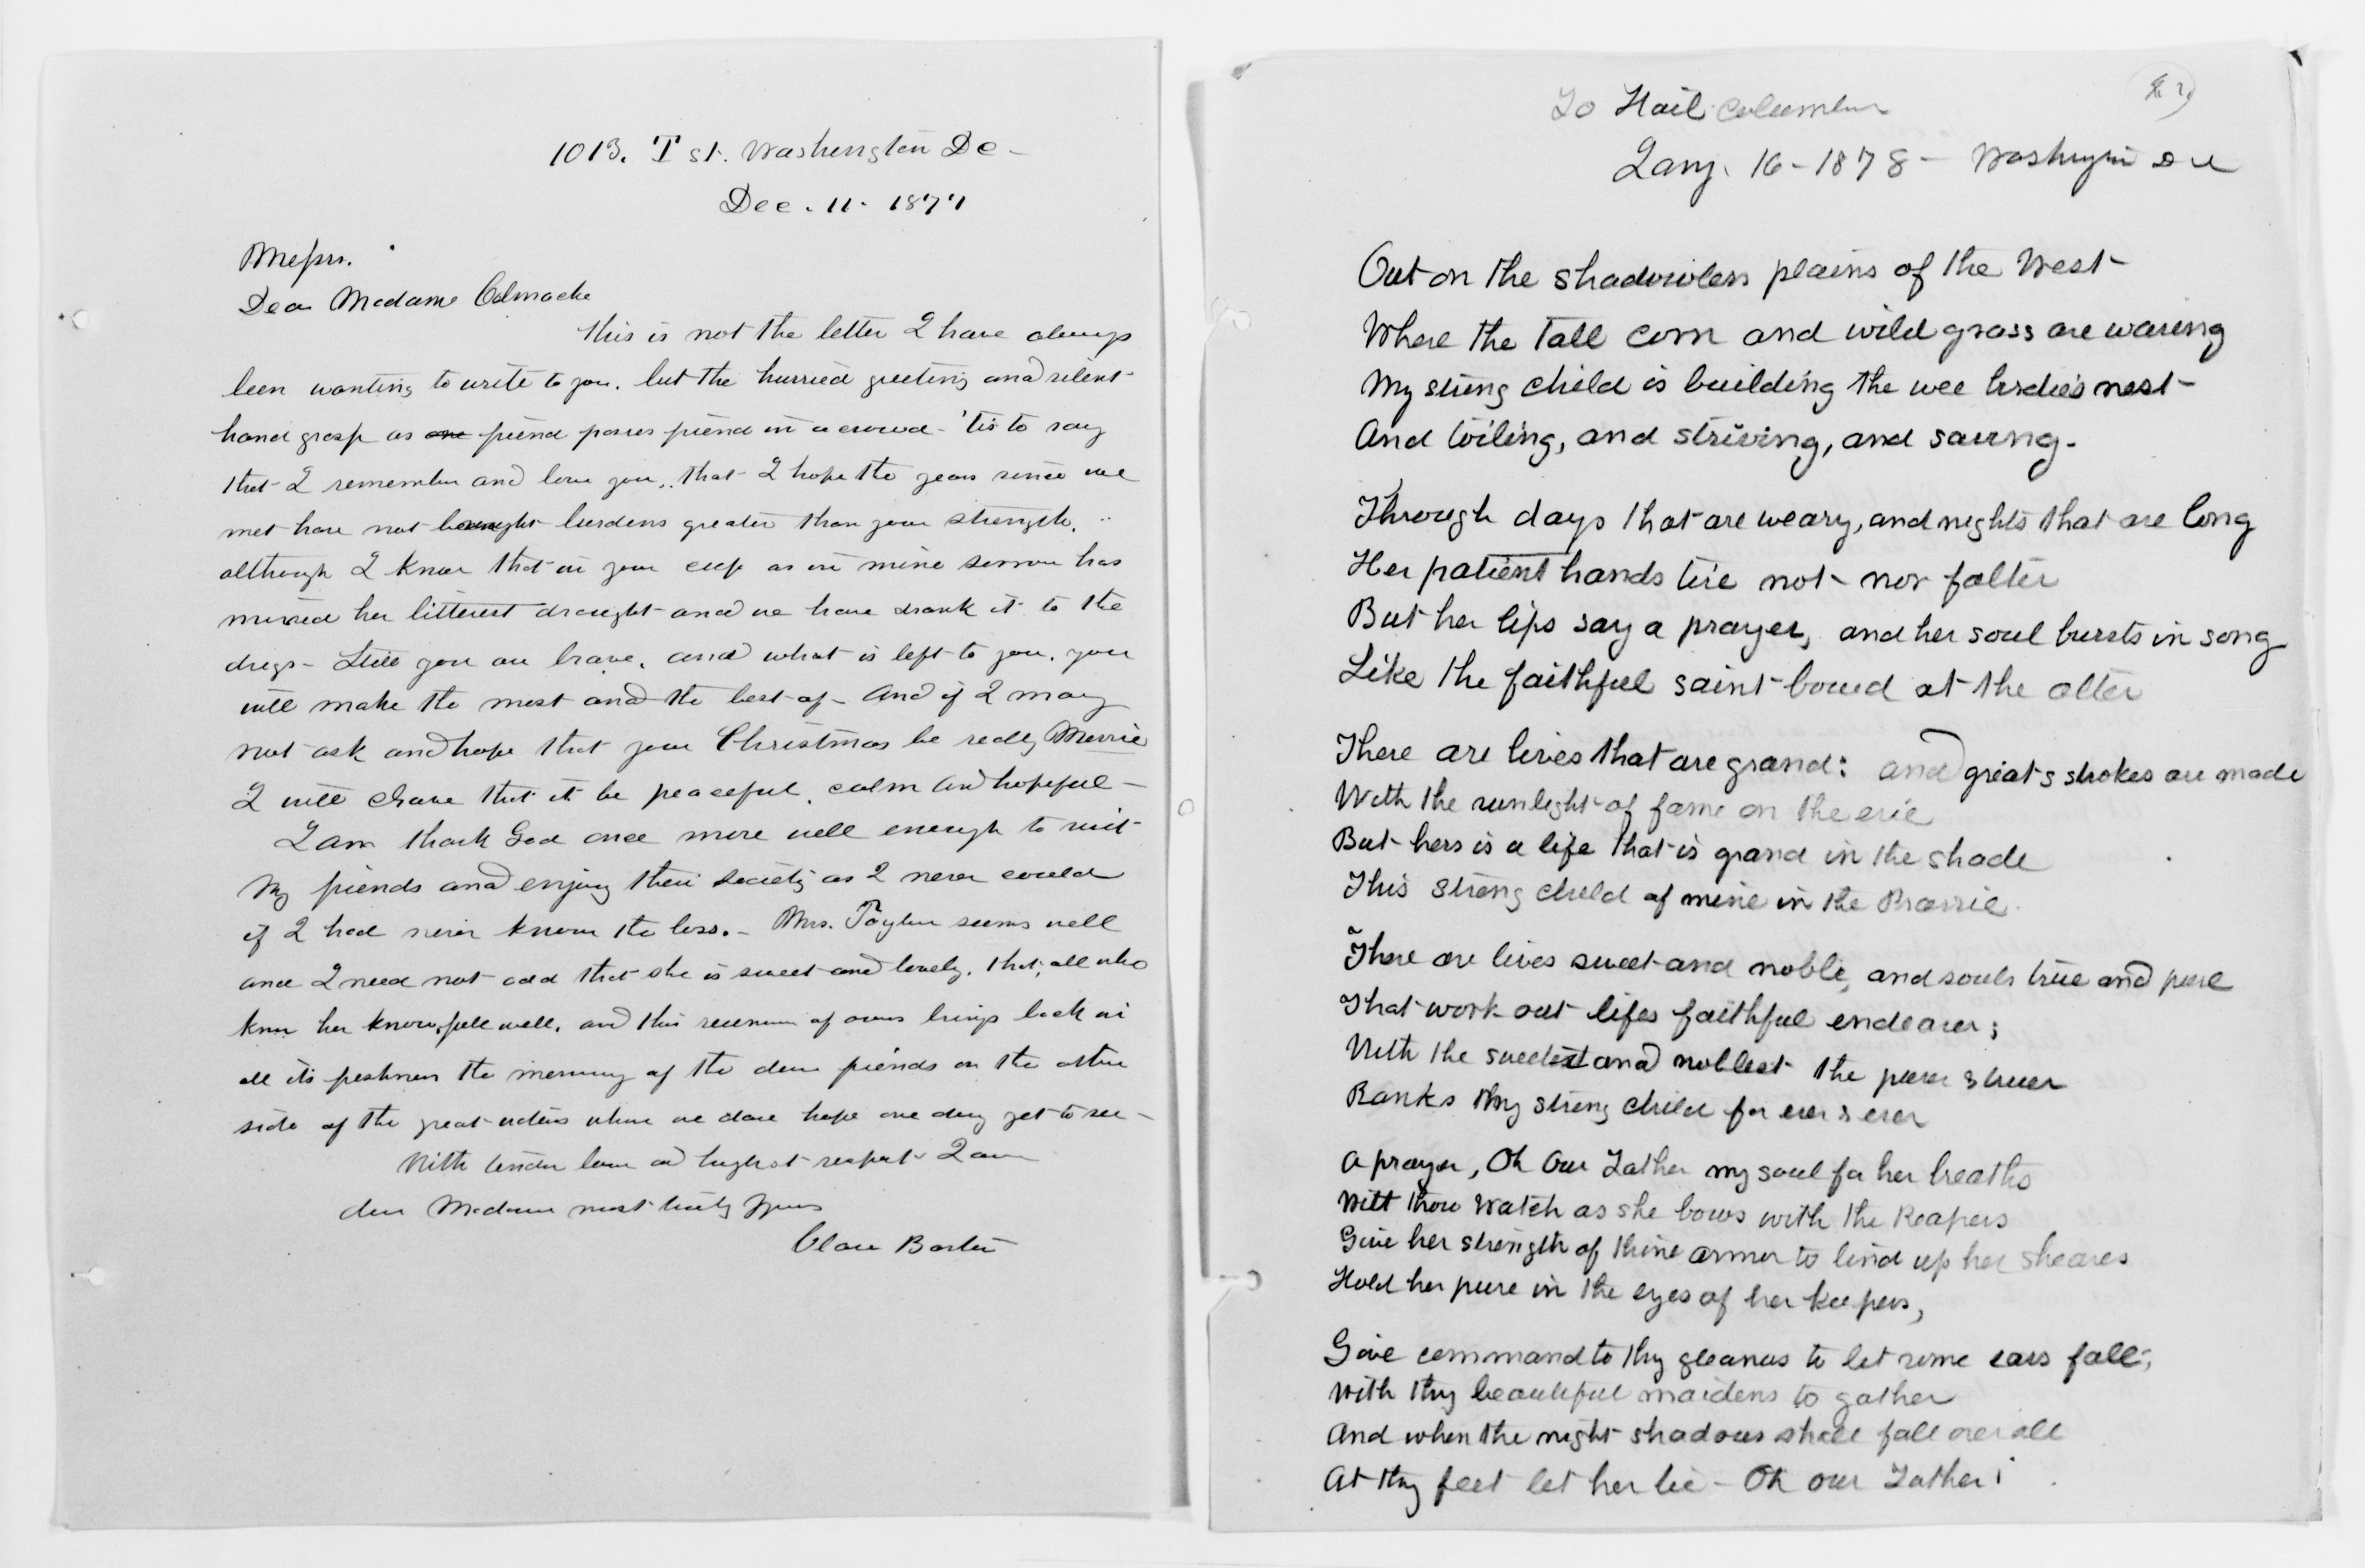 1013. T st. Washington Dc -
Dec. 11. 1877
Messrs.
Dear Madame Colmache
This is not the letter I have always
been wanting to write to you. but the hurried greeting and silent
hand grasp as one friend passes friend in a crowd - 'tis to say
that I remember and love you, that I hope the years since we
met have not brought burdens greater than your strength.
although I know that in your cup as in mine sorrow has
mixed her bitterest draught and we have drank it to the
dregs - Still you are brave, and what is left to you, you
will make the most and the best of - And if I may
not ask and hope that your Christmas be really Merrie
I will crave that it be peaceful, calm and hopeful -
I am thank God once more well enough to visit
my friends and enjoy their society as I never could
if I had never known the loss. - Mrs. Taylor seems well
and I need not add that she is sweet and lovely. that, all who
know her know, full well. and this reunion of ours brings back in
all its freshness the memory of the dear friends on the other
side of the great waters whom we dare hope one day yet to see -
With tender love and highest respect I am
dear Madame most truly yours
Clara Barton
To Hail Columbia
Jany. 16 - 1878 - Washington DC
Out on the shadowless plains of the West -
Where the tall corn and wild grass are waving
My strong child is building the wee birdie's nest -
And toiling, and striving, and saving -
Through days that are weary, and nights that are long
Her patient hands tire not - nor falter
But her lips say a prayer, and her soul bursts in song
Like the faithful saint bowed at the alter
There are lives that are grand: and great strokes are made
With the sunlight of fame on the
But hers is a life that is grand in the shade
This strong child of mine in the Prairie.
There are lives sweet and noble, and souls true and pure
That work out lifes faithful endeaver;
With the sweetest and noblest the purer & truer
Ranks my strong child for ever & ever
A prayer, Oh Our Father my soul for her breaths
Wilt thou watch as she bows with the Reapers
Give her strength of thine armor to bind up her sheaves
Hold her pure in the eyes of her keepers,
Give command to thy gleaners to let some ears fall;
With thy beautiful maidens to gather
And when the night shadows shall fall over all
At thy feet let her lie - Oh our Father!